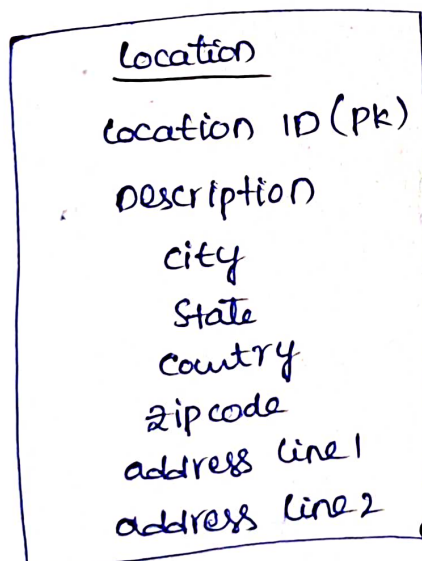 Location
Location ID (PK)
Description
city
State
Country
zipcode
address line1
address line2